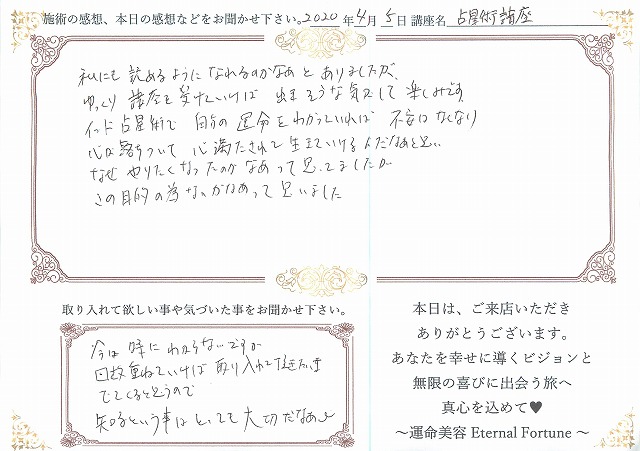 施術の感想、本日の感想などをお聞かせ下さい。2020年4月5日 講座名 占星術講座
私にも読めるようになれるのかなぁとありましたが、
ゆっくり講座を受けていけば出来そうな気がして楽しみです
インド占星術で自分の運命をわかっていれば不安はなくなり
心が落ちついて心満たされて生きていけるんだなぁと思い
なぜやりたくなったのかなぁって思ってましたが
この目的の為なのかなぁって思いました
取り入れて欲しい事や気づいた事をお聞かせ下さい。
今は特にわからないですが
回数重ねていけば取り入れて
でてくると思うので
知るという事はとっても大切だなぁと
本日は、ご来店いただき
ありがとうございます。
あなたを幸せに導くビジョンと
無限の喜びに出会う旅へ
真心を込めて♥
～運命美容 Eternal Fortune ～